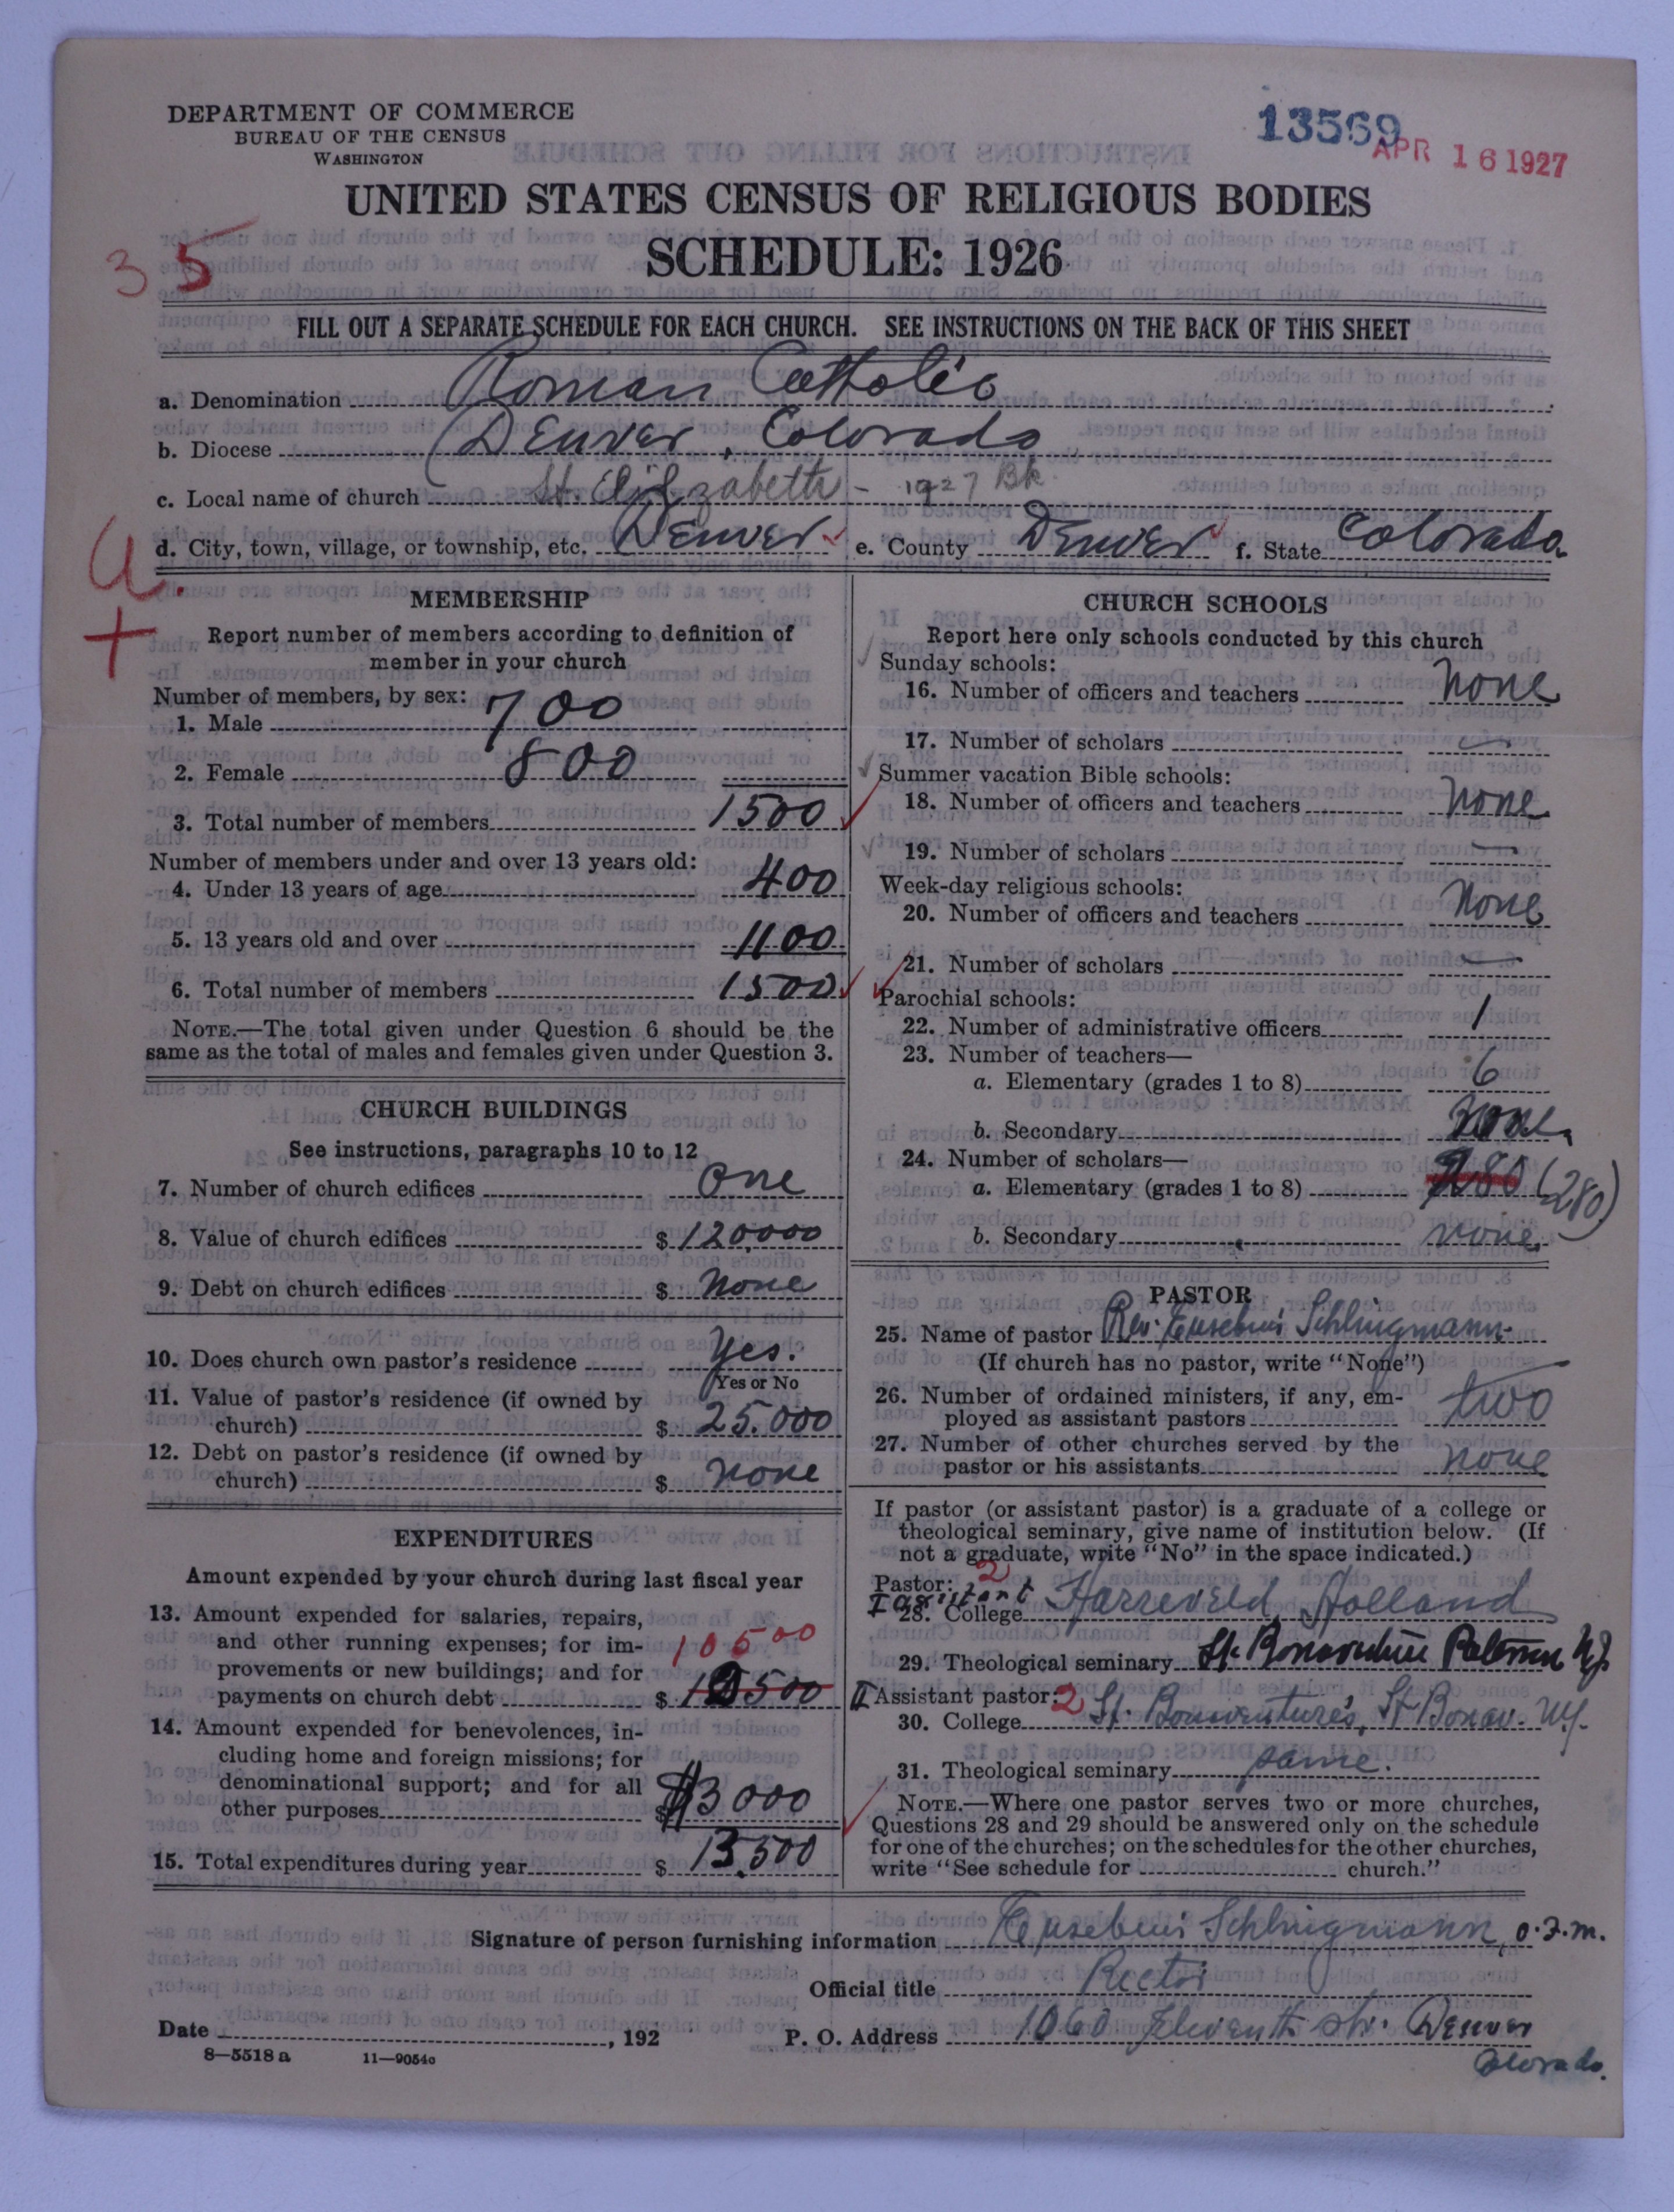 DEPARTMENT OF COMMERCE
BUREAU OF THE CENSUS
WASHINGTON
13569
APR 16 1927
UNITED STATES CENSUS OF RELIGIOUS BODIES
SCHEDULE: 1926
35
FILL OUT A SEPARATE SCHEDULE FOR EACH CHURCH. SEE INSTRUCTIONS ON THE BACK OF THIS SHEET
a. Denomination Roman Catholic
b. Diocese Denver, Colorado
c. Local name of church St. Elizabeth - 1927 Bk.
d. City, town, village, or township, etc. Denver e. County Denver f. State Colorado.
MEMBERSHIP
Report number of members according to definition of
member in your church
Number of members, by sex:
1. Male 700
2. Female 800
3. Total number of members 1500
Number of members under and over 13 years old:
4. Under 13 years of age 400
5. 13 years old and over 1100
6. Total number of members 1500
NOTE.—The total given under Question 6 should be the
same as the total of males and females given under Question 3.
CHURCH BUILDINGS
See instructions, paragraphs 10 to 12
7. Number of church edifices One
8. Value of church edifices $ 120,000
9. Debt on church edifices $ None
10. Does church own pastor's residence Yes.
Yes or No
11. Value of pastor's residence (if owned by
church) $ 25.000
12. Debt on pastor's residence (if owned by
church) $ None
EXPENDITURES
Amount expended by your church during last fiscal year
13. Amount expended for salaries, repairs,
and other running expenses; for im-
10500
provements or new buildings; and for
payments on church debt $
14. Amount expended for benevolences, in-
cluding home and foreign missions; for
denominational support; and for all
other purposes $ $3000
15. Total expenditures during year $ 13.500
CHURCH SCHOOLS
Report here only schools conducted by this church
Sunday schools:
16. Number of officers and teachers None
17. Number of scholars —
Summer vacation Bible schools:
18. Number of officers and teachers None
19. Number of scholars —
Week-day religious schools:
20. Number of officers and teachers None
21. Number of scholars —
Parochial schools:
22. Number of administrative officers 1
23. Number of teachers—
a. Elementary (grades 1 to 8) 6
b. Secondary None.
24. Number of scholars—
a. Elementary (grades 1 to 8) 280 (280)
b. Secondary None.
PASTOR
25. Name of pastor Rev. Eusebius Schlingmann
(If church has no pastor, write "None")
26. Number of ordained ministers, if any, em-
ployed as assistant pastors two
27. Number of other churches served by the
pastor or his assistants none
If pastor (or assistant pastor) is a graduate of a college or
theological seminary, give name of institution below. (If
not a graduate, write "No" in the space indicated.)
Pastor: 2
I assistant
28. College Harreveld, Holland
29. Theological seminary St. Bonaventure Paterson N.J.
II Assistant pastor: 2
30. College St. Bonaventure's, St Bonav. N.Y.
31. Theological seminary same.
NOTE.—Where one pastor serves two or more churches,
Questions 28 and 29 should be answered only on the schedule
for one of the churches; on the schedules for the other churches,
write "See schedule for church."
Signature of person furnishing information Eusebius Schlingmann, O.F.M.
Official title Rector
Date , 192 P. O. Address 1060 Eleventh str. Denver
Colorado.
8—5518 a 11—9054c